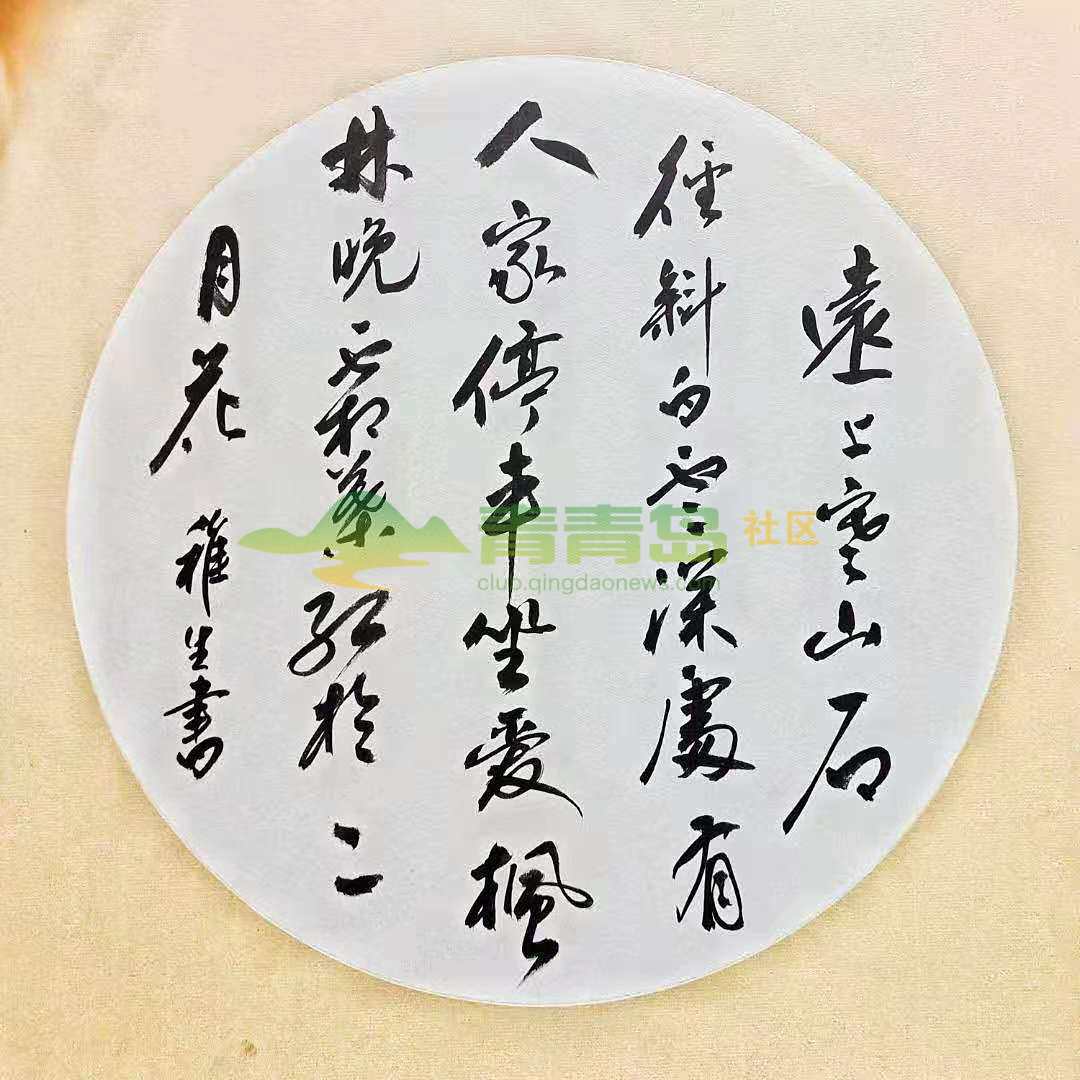 遠上寒山石
徑斜白雲深處有
人家停車坐愛楓
林晚霜葉紅於二
月花
雅生書
青青岛 社区
club.qingdaonews.com